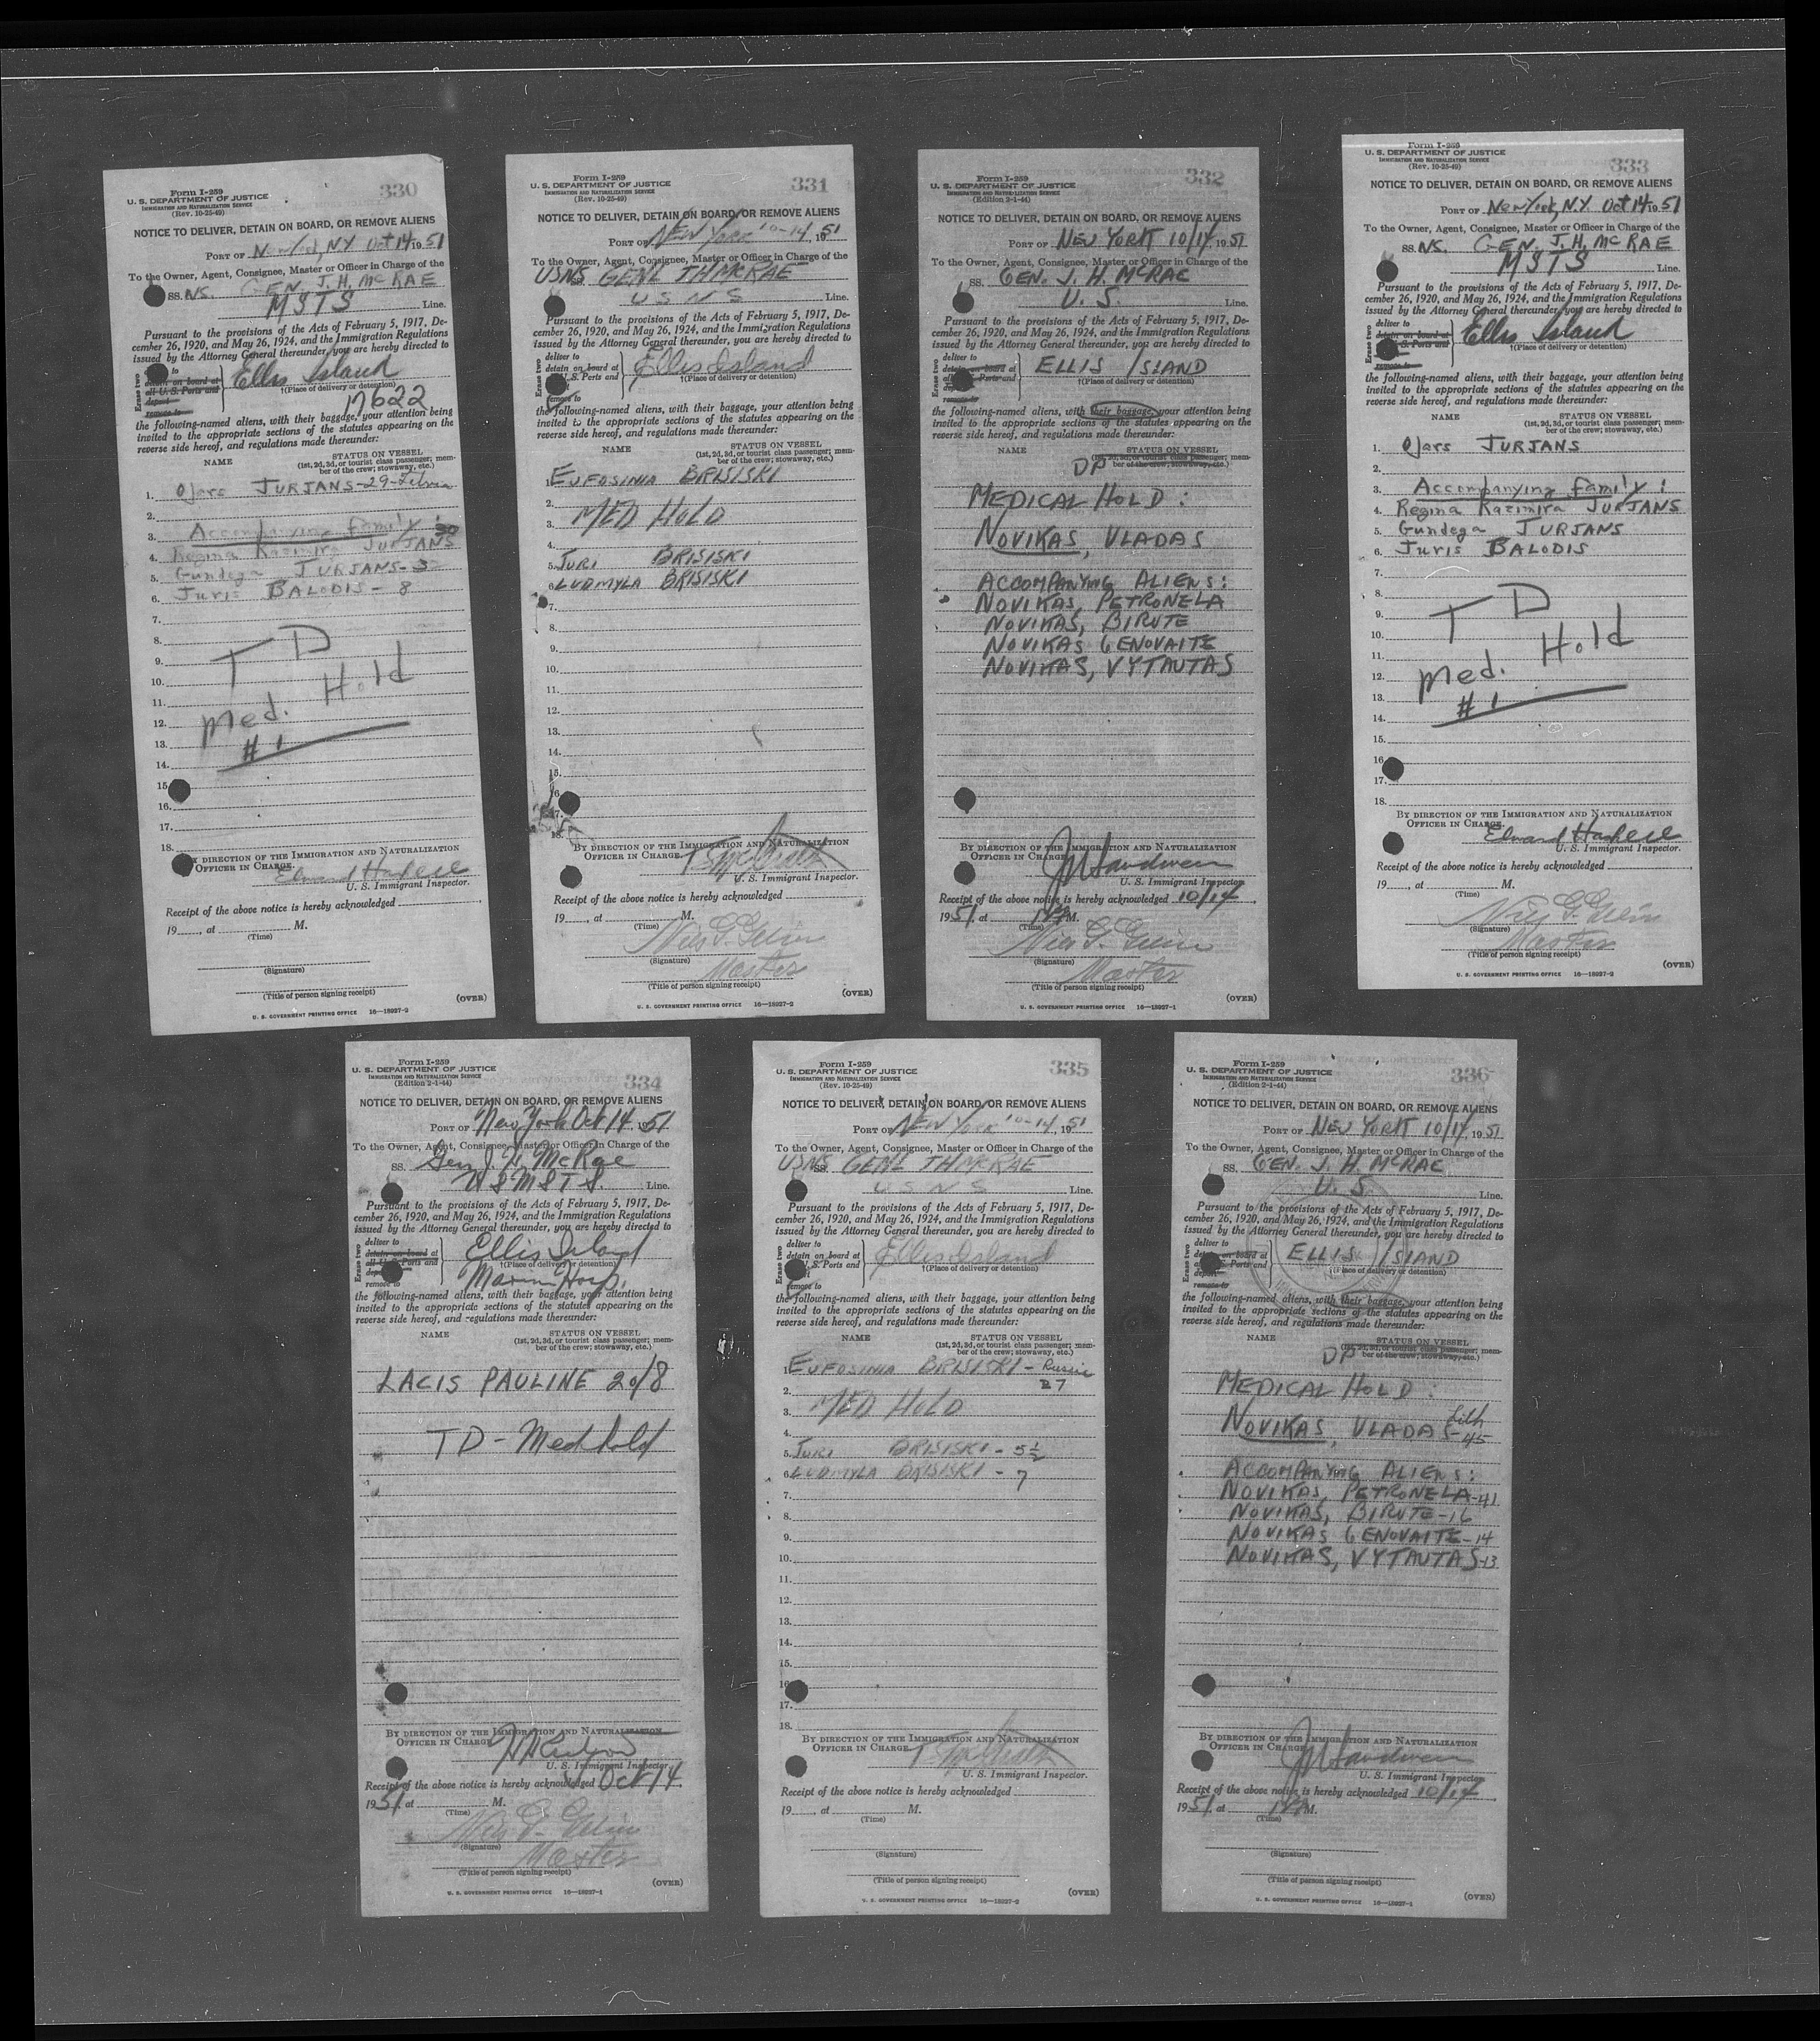 Form I-259
U. S. DEPARTMENT OF JUSTICE
IMMIGRATION AND NATURALIZATION SERVICE
(Rev. 10-25-49)
330
NOTICE TO DELIVER, DETAIN ON BOARD, OR REMOVE ALIENS
PORT OF New York, N.Y. Oct 14 1951
To the Owner, Agent, Consignee, Master or Officer in Charge of the
SS. NS. GEN. J. H. McRAE
MSTS Line.
Pursuant to the provisions of the Acts of February 5, 1917, De-
cember 26, 1920, and May 26, 1924, and the Immigration Regulations
issued by the Attorney General thereunder, you are hereby directed to
Erase two
to
detain on board at
all U. S. Ports and
deport
remove to
Ellis Island
†(Place of delivery or detention)
17622
the following-named aliens, with their baggage, your attention being
invited to the appropriate sections of the statutes appearing on the
reverse side hereof, and regulations made thereunder:
NAME STATUS ON VESSEL
(1st, 2d, 3d, or tourist class passenger; mem-
ber of the crew; stowaway, etc.)
1. Ojars JURJANS-29-
2.
3. Accompanying family:
4. Regina Kazimira JURJANS 30
5. Gundega JURJANS-3
6. Juris BALODIS - 8
7.
8.
9. T D
10.
11. Hold
12. Med.
13. # 1
14.
15.
16.
17.
18.
BY DIRECTION OF THE IMMIGRATION AND NATURALIZATION
OFFICER IN CHARGE.
U. S. Immigrant Inspector.
Receipt of the above notice is hereby acknowledged
19, at M.
(Time)
(Signature)
(Title of person signing receipt)
(OVER)
U. S. GOVERNMENT PRINTING OFFICE 16—18927-2
Form I-259
U. S. DEPARTMENT OF JUSTICE
IMMIGRATION AND NATURALIZATION SERVICE
(Rev. 10-25-49)
331
NOTICE TO DELIVER, DETAIN ON BOARD, OR REMOVE ALIENS
PORT OF NEW YORK 10-14, 1951
To the Owner, Agent, Consignee, Master or Officer in Charge of the
USNS SS. GENL JH McRAE
U S N S Line.
Pursuant to the provisions of the Acts of February 5, 1917, De-
cember 26, 1920, and May 26, 1924, and the Immigration Regulations
issued by the Attorney General thereunder, you are hereby directed to
Erase two
deliver to
detain on board at
U. S. Ports and
remove to
Ellis Island
†(Place of delivery or detention)
the following-named aliens, with their baggage, your attention being
invited to the appropriate sections of the statutes appearing on the
reverse side hereof, and regulations made thereunder:
NAME STATUS ON VESSEL
(1st, 2d, 3d, or tourist class passenger; mem-
ber of the crew; stowaway, etc.)
1. EUFOSINIA BRISISKI
2.
3. MED HOLD
4.
5. JURI BRISISKI
6. LUDMYLA BRISISKI
7.
8.
9.
10.
11.
12.
13.
14.
15.
16.
17.
18.
BY DIRECTION OF THE IMMIGRATION AND NATURALIZATION
OFFICER IN CHARGE.
U. S. Immigrant Inspector.
Receipt of the above notice is hereby acknowledged
19, at M.
(Time)
(Signature)
Master
(Title of person signing receipt)
(OVER)
U. S. GOVERNMENT PRINTING OFFICE 16—18927-2
Form I-259
U. S. DEPARTMENT OF JUSTICE
IMMIGRATION AND NATURALIZATION SERVICE
(Edition 2-1-44)
332
NOTICE TO DELIVER, DETAIN ON BOARD, OR REMOVE ALIENS
PORT OF NEW YORK 10/14, 1951
To the Owner, Agent, Consignee, Master or Officer in Charge of the
SS. GEN. J. H. McRAE
U. S. Line.
Pursuant to the provisions of the Acts of February 5, 1917, De-
cember 26, 1920, and May 26, 1924, and the Immigration Regulations
issued by the Attorney General thereunder, you are hereby directed to
Erase two
deliver to
detain on board at
Ports and
remove to
ELLIS ISLAND
†(Place of delivery or detention)
the following-named aliens, with their baggage, your attention being
invited to the appropriate sections of the statutes appearing on the
reverse side hereof, and regulations made thereunder:
NAME STATUS ON VESSEL
(1st, 2d, 3d, or tourist class passenger; mem-
ber of the crew; stowaway, etc.)
DP
MEDICAL HOLD :
NOVIKAS, VLADAS
ACCOMPANYING ALIENS:
NOVIKAS, PETRONELA
NOVIKAS, BIRUTE
NOVIKAS GENOVAITE
NOVIKAS, VYTAUTAS
BY DIRECTION OF THE IMMIGRATION AND NATURALIZATION
OFFICER IN CHARGE.
U. S. Immigrant Inspector
Receipt of the above notice is hereby acknowledged 10/14
1951 at M.
(Time)
(Signature)
Master
(Title of person signing receipt)
(OVER)
U. S. GOVERNMENT PRINTING OFFICE 16—18927-1
Form I-259
U. S. DEPARTMENT OF JUSTICE
IMMIGRATION AND NATURALIZATION SERVICE
(Rev. 10-25-49)
333
NOTICE TO DELIVER, DETAIN ON BOARD, OR REMOVE ALIENS
PORT OF New York, N.Y. Oct 14 1951
To the Owner, Agent, Consignee, Master or Officer in Charge of the
SS. NS. GEN. J. H. McRAE
MSTS Line.
Pursuant to the provisions of the Acts of February 5, 1917, De-
cember 26, 1920, and May 26, 1924, and the Immigration Regulations
issued by the Attorney General thereunder, you are hereby directed to
Erase two
deliver to
detain on board at
U. S. Ports and
remove to
Ellis Island
†(Place of delivery or detention)
the following-named aliens, with their baggage, your attention being
invited to the appropriate sections of the statutes appearing on the
reverse side hereof, and regulations made thereunder:
NAME STATUS ON VESSEL
(1st, 2d, 3d, or tourist class passenger; mem-
ber of the crew; stowaway, etc.)
1. Ojars JURJANS
2.
3. Accompanying family:
4. Regina Kazimira JURJANS
5. Gundega JURJANS
6. Juris BALODIS
7.
8.
9. T D
10.
11. Hold
12. Med.
13. # 1
14.
15.
16.
17.
18.
BY DIRECTION OF THE IMMIGRATION AND NATURALIZATION
OFFICER IN CHARGE.
U. S. Immigrant Inspector.
Receipt of the above notice is hereby acknowledged
19, at M.
(Time)
(Signature)
Master
(Title of person signing receipt)
(OVER)
U. S. GOVERNMENT PRINTING OFFICE 16—18927-2
Form I-259
U. S. DEPARTMENT OF JUSTICE
IMMIGRATION AND NATURALIZATION SERVICE
(Edition 2-1-44)
334
NOTICE TO DELIVER, DETAIN ON BOARD, OR REMOVE ALIENS
PORT OF New York Oct 14, 1951
To the Owner, Agent, Consignee, Master or Officer in Charge of the
SS. Gen J. H. McRae
U S M S T S. Line.
Pursuant to the provisions of the Acts of February 5, 1917, De-
cember 26, 1920, and May 26, 1924, and the Immigration Regulations
issued by the Attorney General thereunder, you are hereby directed to
Erase two
deliver to
detain on board at
all U. S. Ports and
remove to
Ellis Island
†(Place of delivery or detention)
Marine Hosp.
the following-named aliens, with their baggage, your attention being
invited to the appropriate sections of the statutes appearing on the
reverse side hereof, and regulations made thereunder:
NAME STATUS ON VESSEL
(1st, 2d, 3d, or tourist class passenger; mem-
ber of the crew; stowaway, etc.)
LACIS PAULINE 20/8
TD - Med hold
BY DIRECTION OF THE IMMIGRATION AND NATURALIZATION
OFFICER IN CHARGE
U. S. Immigrant Inspector.
Receipt of the above notice is hereby acknowledged Oct 14
1951, at M.
(Time)
(Signature)
Master
(Title of person signing receipt)
(OVER)
U. S. GOVERNMENT PRINTING OFFICE 16—18927-1
Form I-259
U. S. DEPARTMENT OF JUSTICE
IMMIGRATION AND NATURALIZATION SERVICE
(Rev. 10-25-49)
335
NOTICE TO DELIVER, DETAIN ON BOARD, OR REMOVE ALIENS
PORT OF NEW YORK 10-14, 1951
To the Owner, Agent, Consignee, Master or Officer in Charge of the
USNS SS. GENL JH McRAE
U S N S Line.
Pursuant to the provisions of the Acts of February 5, 1917, De-
cember 26, 1920, and May 26, 1924, and the Immigration Regulations
issued by the Attorney General thereunder, you are hereby directed to
Erase two
deliver to
detain on board at
U. S. Ports and
remove to
Ellis Island
†(Place of delivery or detention)
the following-named aliens, with their baggage, your attention being
invited to the appropriate sections of the statutes appearing on the
reverse side hereof, and regulations made thereunder:
NAME STATUS ON VESSEL
(1st, 2d, 3d, or tourist class passenger; mem-
ber of the crew; stowaway, etc.)
1. EUFOSINIA BRISISKI - Russia
27
2.
3. MED HOLD
4.
5. JURI BRISISKI - 5 1/2
6. LUDMYLA BRISISKI - 7
7.
8.
9.
10.
11.
12.
13.
14.
15.
16.
17.
18.
BY DIRECTION OF THE IMMIGRATION AND NATURALIZATION
OFFICER IN CHARGE.
U. S. Immigrant Inspector.
Receipt of the above notice is hereby acknowledged
19, at M.
(Time)
(Signature)
(Title of person signing receipt)
(OVER)
U. S. GOVERNMENT PRINTING OFFICE 16—18927-2
Form I-259
U. S. DEPARTMENT OF JUSTICE
IMMIGRATION AND NATURALIZATION SERVICE
(Edition 2-1-44)
336
NOTICE TO DELIVER, DETAIN ON BOARD, OR REMOVE ALIENS
PORT OF NEW YORK 10/14, 1951
To the Owner, Agent, Consignee, Master or Officer in Charge of the
SS. GEN. J. H. McRAE
U. S. Line.
Pursuant to the provisions of the Acts of February 5, 1917, De-
cember 26, 1920, and May 26, 1924, and the Immigration Regulations
issued by the Attorney General thereunder, you are hereby directed to
Erase two
deliver to
detain on board at
Ports and
remove to
ELLIS ISLAND
†(Place of delivery or detention)
the following-named aliens, with their baggage, your attention being
invited to the appropriate sections of the statutes appearing on the
reverse side hereof, and regulations made thereunder:
NAME STATUS ON VESSEL
(1st, 2d, 3d, or tourist class passenger; mem-
ber of the crew; stowaway, etc.)
DP
MEDICAL HOLD :
NOVIKAS, VLADAS Lith -45
ACCOMPANYING ALIENS:
NOVIKAS, PETRONELA-41
NOVIKAS, BIRUTE-16
NOVIKAS GENOVAITE-14
NOVIKAS, VYTAUTAS-13
BY DIRECTION OF THE IMMIGRATION AND NATURALIZATION
OFFICER IN CHARGE.
U. S. Immigrant Inspector
Receipt of the above notice is hereby acknowledged 10/14
1951, at M.
(Time)
(Signature)
(Title of person signing receipt)
(OVER)
U. S. GOVERNMENT PRINTING OFFICE 16—18927-1